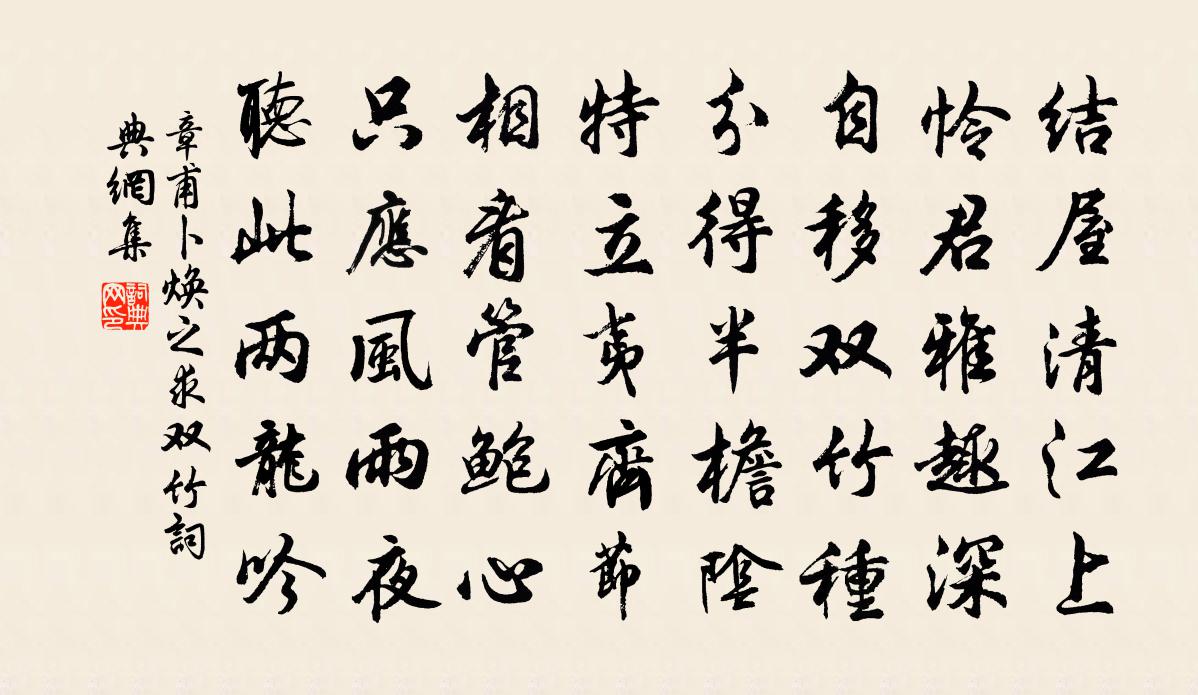 结屋清江上
怜君雅趣深
自移双竹種
分得半檐陰
特立夷齊節
相看管鮑心
只應風雨夜
聽此两龍吟
章甫卜焕之求双竹詞
典網集
詞典网印